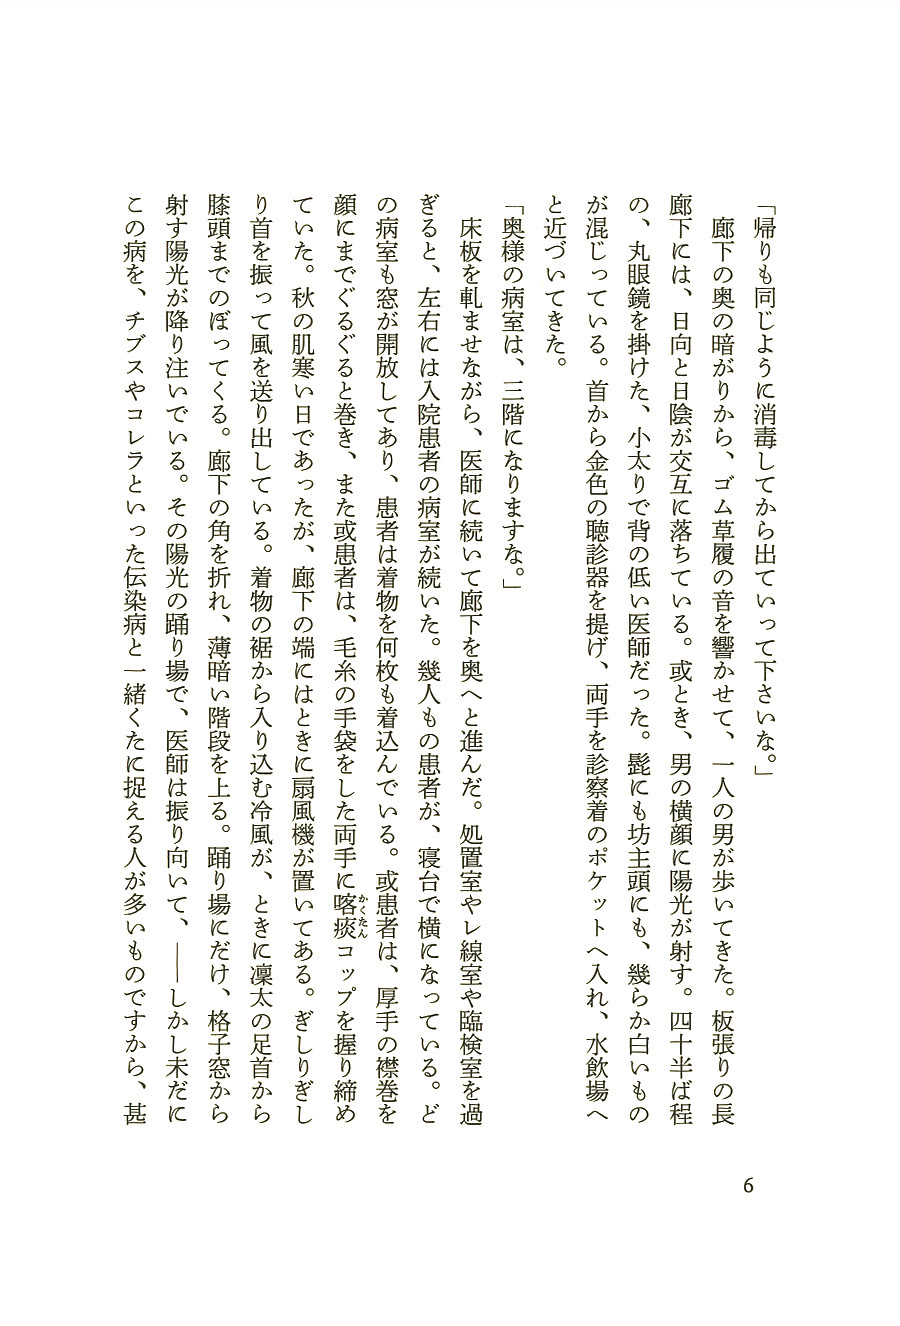 「帰りも同じように消毒してから出ていって下さいな。」
　廊下の奥の暗がりから、ゴム草履の音を響かせて、一人の男が歩いてきた。板張りの長
廊下には、日向と日陰が交互に落ちている。或とき、男の横顔に陽光が射す。四十半ば程
の、丸眼鏡を掛けた、小太りで背の低い医師だった。髭にも坊主頭にも、幾らか白いもの
が混じっている。首から金色の聴診器を提げ、両手を診察着のポケットへ入れ、水飲場へ
と近づいてきた。
「奥様の病室は、三階になりますな。」
　床板を軋ませながら、医師に続いて廊下を奥へと進んだ。処置室やレ線室や臨検室を過
ぎると、左右には入院患者の病室が続いた。幾人もの患者が、寝台で横になっている。ど
の病室も窓が開放してあり、患者は着物を何枚も着込んでいる。或患者は、厚手の襟巻を
顔にまでぐるぐると巻き、また或患者は、毛糸の手袋をした両手に喀痰コップを握り締め
かくたん
ていた。秋の肌寒い日であったが、廊下の端にはときに扇風機が置いてある。ぎしりぎし
り首を振って風を送り出している。着物の裾から入り込む冷風が、ときに凜太の足首から
膝頭までのぼってくる。廊下の角を折れ、薄暗い階段を上る。踊り場にだけ、格子窓から
射す陽光が降り注いでいる。その陽光の踊り場で、医師は振り向いて、――しかし未だに
この病を、チブスやコレラといった伝染病と一緒くたに捉える人が多いものですから、甚
6